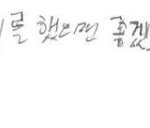 를 했으면 좋겠